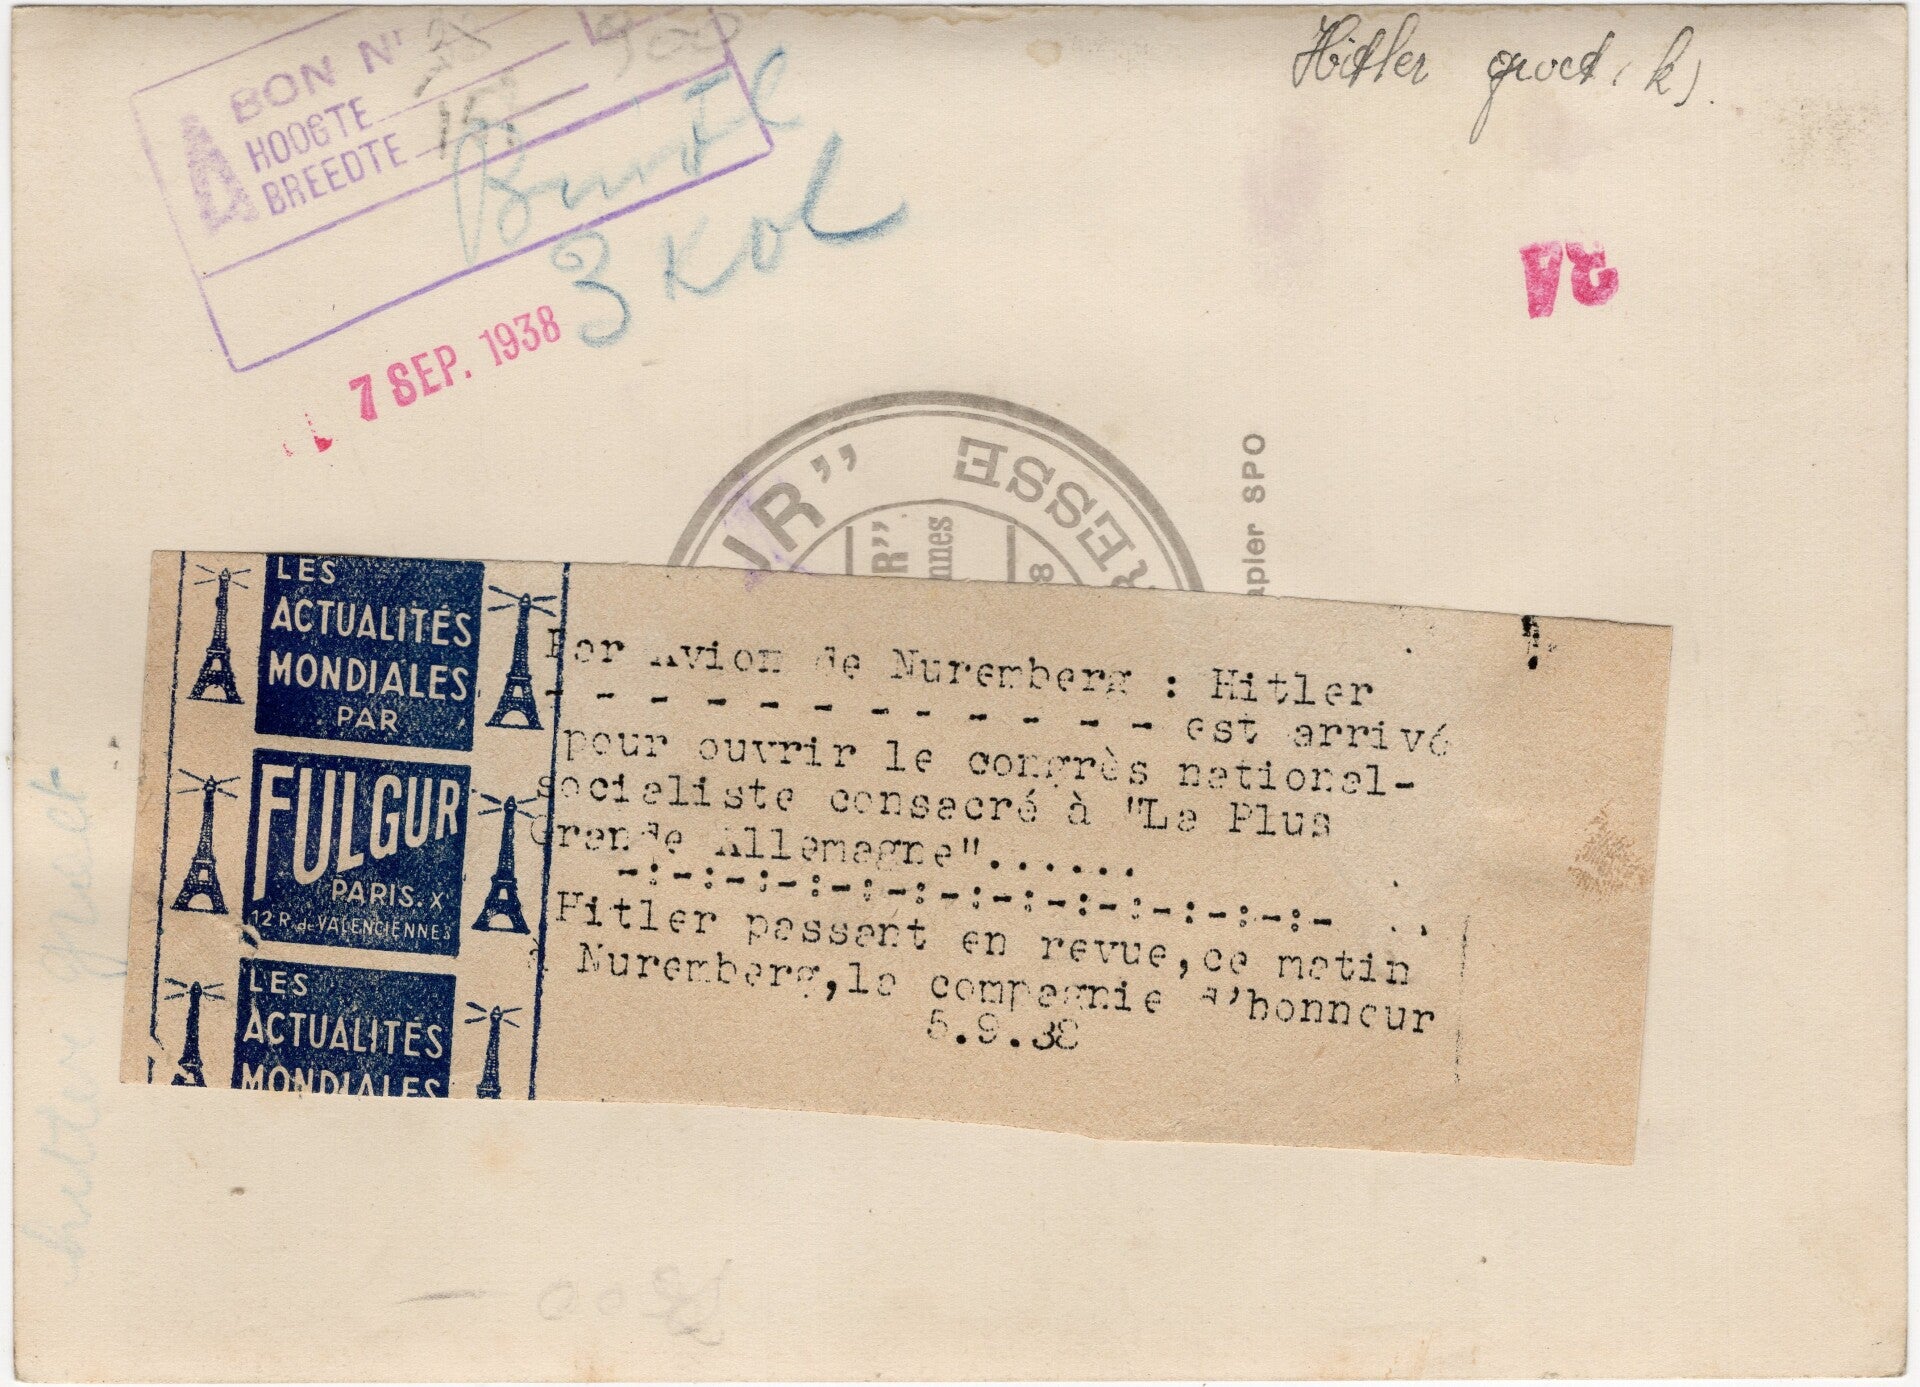 BON Nr
HOOGTE
BREEDTE
3 KOL
7 SEP. 1938
Hitler groet. k).
UR”
RESSE
R”
nnes
8
apier SPO
LES
ACTUALITÉS
MONDIALES
PAR
FULGUR
PARIS. X
12 R. de VALENCIENNES
LES
ACTUALITÉS
MONDIALES
Par Avion de Nuremberg : Hitler
- - - - - - - - - - - - est arrivé
pour ouvrir le congrès national-
socialiste consacré à "La Plus
Grande Allemagne"......
-:-:-:-:-:-:-:-:-:-:-:-:-:-
Hitler passant en revue,ce matin
à Nuremberg,la compagnie d'honneur
5.9.38